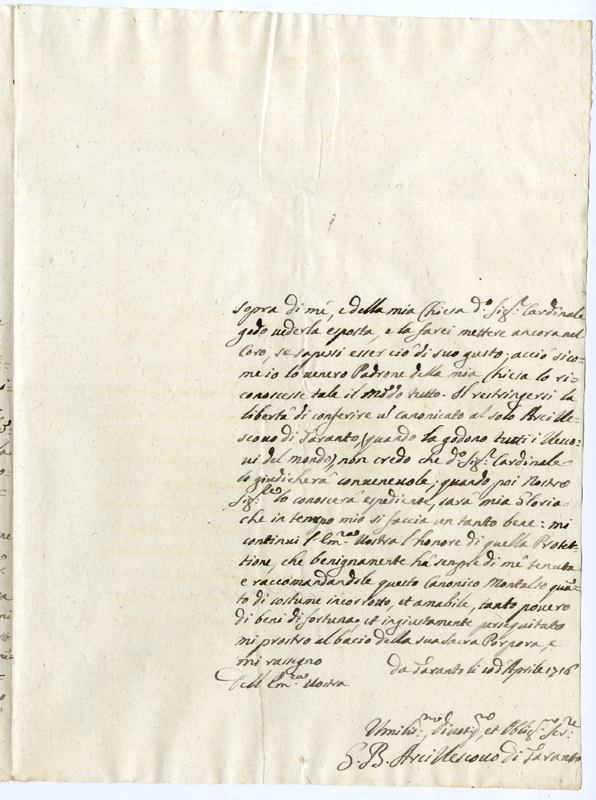 sopra di mé, e della mia Chiesa d.o Sig.r Cardinale
godo vederla esposta, e la farei mettere ancora nel
Coro, se sapessi esser ciò di suo gusto; acciò sico=
me io lo venero Padrone della mia Chiesa lo ri=
conoscesse tale il mondo tutto. Il restringersi la
libertà di conferire un canonicato al solo Arcive=
scovo di Taranto (quando la godono tutti i Vesco=
vi del mondo), non credo che d.o Sig.r Cardinale
lo giudicherà convenevole; quando poi Nostro
Sig.re lo conoscerà espediente, sarà mia gloria
che in tempo mio si faccia un tanto bene: mi
continui l'Em.za Vostra l'honore di quella Protet=
tione, che benignamente hà sempre di mé tenuta
e raccomandandole questo Canonico Montalto quã=
to di costume incorrotto, et amabile, tanto povero
di beni di fortuna, et ingiustamente perseguitato
mi prostro al bacio della sua Sacra Porpora, e
mi rassegno da Taranto li 10 d'Aprile 1716
Dell'Em.za Vostra
Umilis.mo, Divotis.mo, et Oblig.mo Ser.re
G. B. Arcivescovo di Taranto